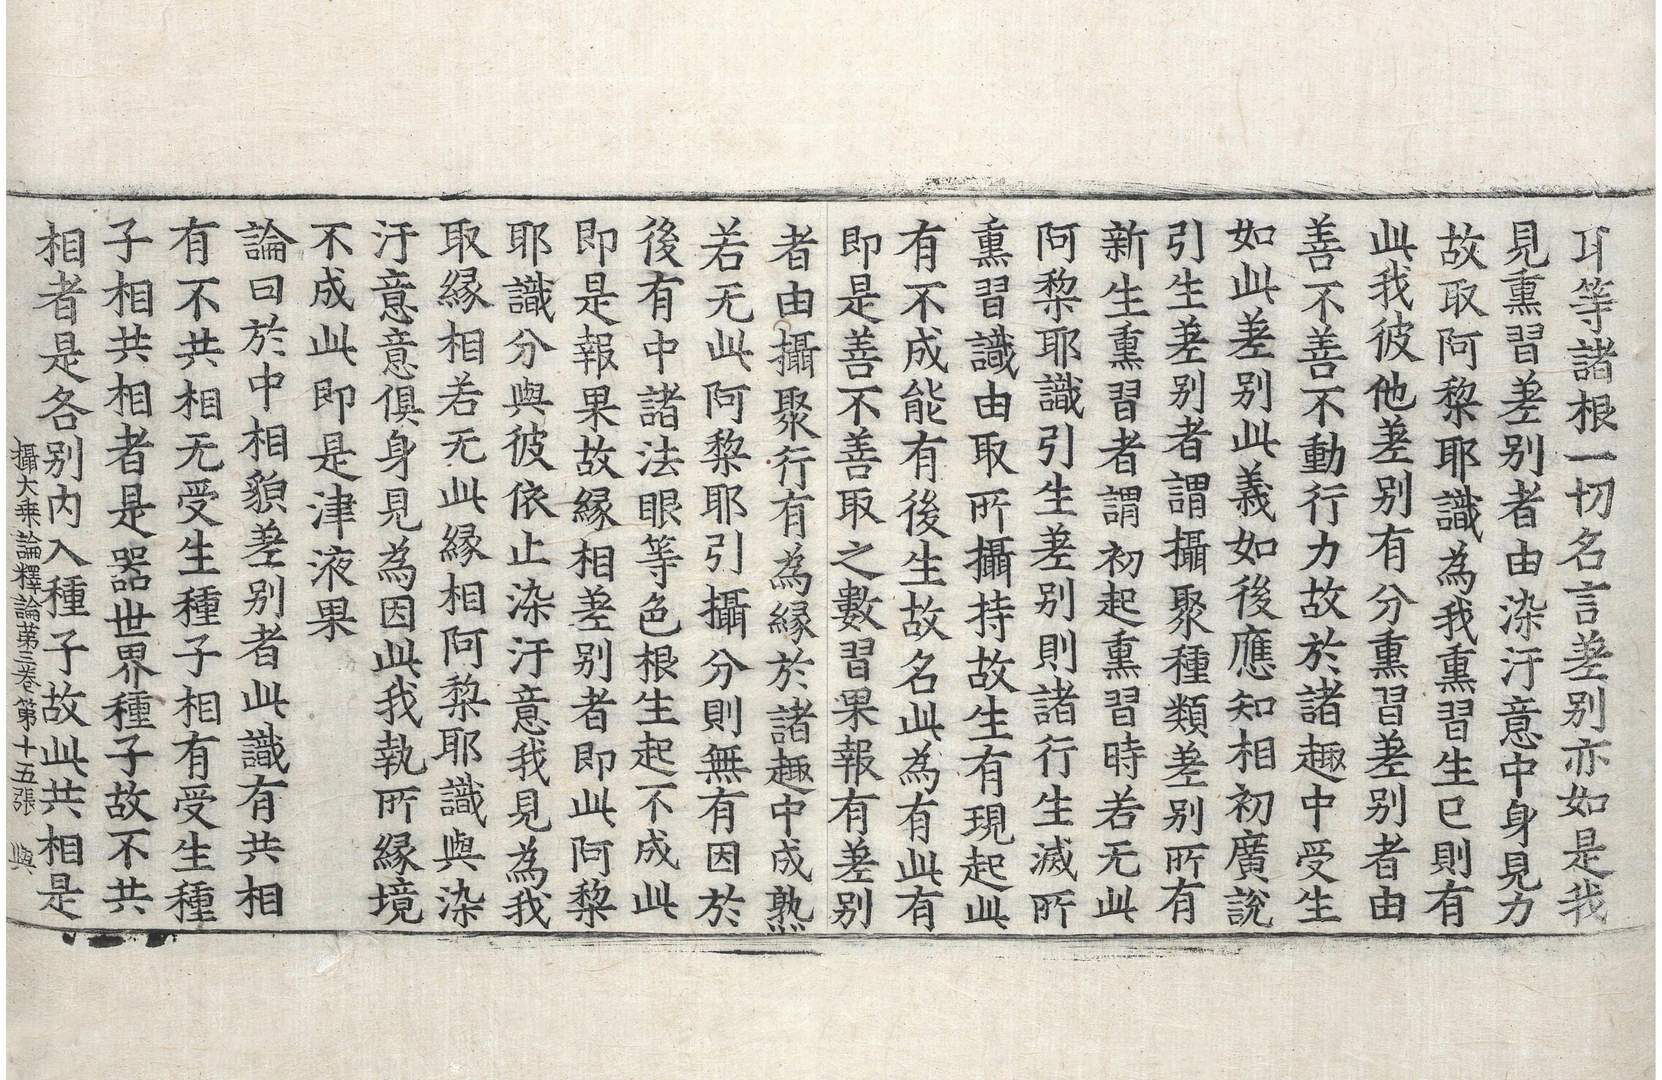 耳等諸根一切名言差别亦如是我
見熏習差别者由染汙意中身見力
故取阿黎耶識為我熏習生已則有
此我彼他差别有分熏習差别者由
善不善不動行力故於諸趣中受生
如此差别此義如後應知相初廣說
引生差别者謂攝聚種類差别所有
新生熏習者謂初起熏習時若无此
阿黎耶識引生差别則諸行生滅所
熏習識由取所攝持故生有現起此
有不成能有後生故名此為有此有
即是善不善取之數習果報有差别
者由攝聚行有為緣於諸趣中成熟
若无此阿黎耶引攝分則無有因於
後有中諸法眼等色根生起不成此
即是報果故緣相差别者即此阿黎
耶識分與彼依止染汙意我見為我
取緣相若无此緣相阿黎耶識與染
汙意意俱身見為因此我執所緣境
不成此即是津液果
論曰於中相貌差别者此識有共相
有不共相无受生種子相有受生種
子相共相者是器世界種子故不共
相者是各别内入種子故此共相是
攝大乗論釋論苐三卷第十五張 與